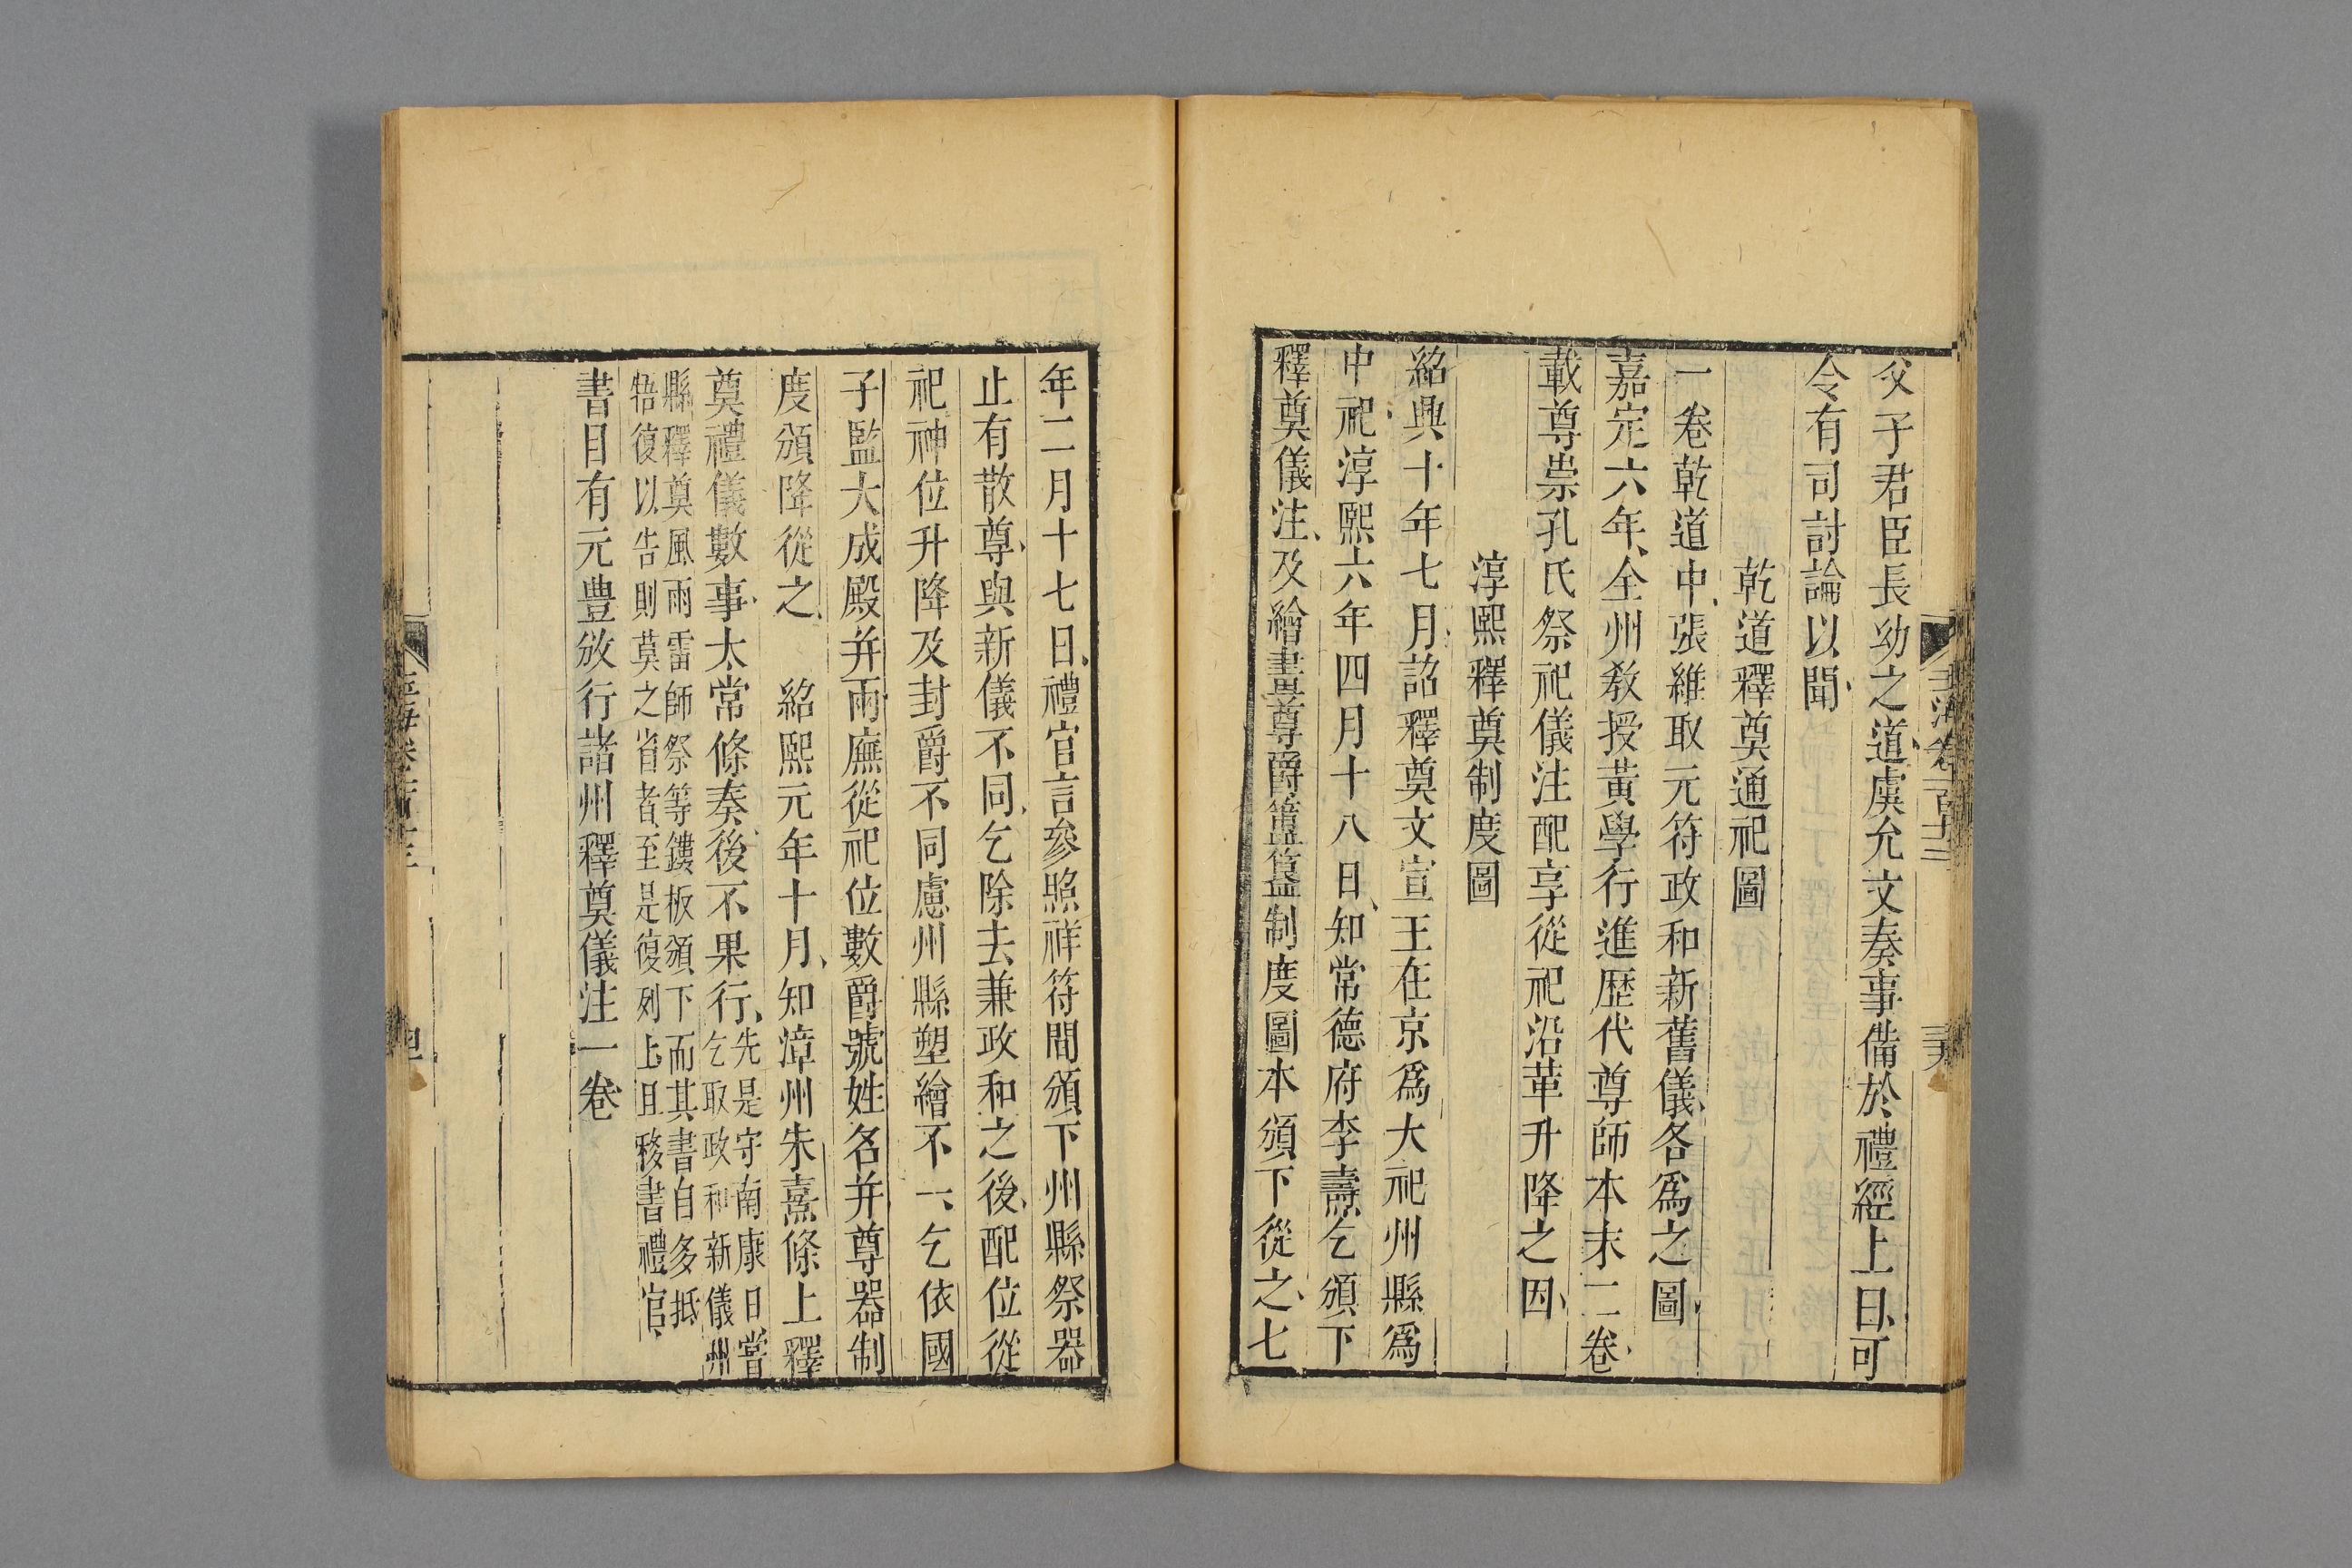 父子君臣長幼之道虞允文奏事備於禮經上曰可
令有司討論以聞
乾道釋奠通祀圖
一卷乾道中張維取元符政和新舊儀各爲之圖
嘉定六年全州敎授黃學行進歷代尊師本末二卷
載尊崇孔氏祭祀儀注配享從祀沿革升降之因
淳熙釋奠制度圖
紹興十年七月詔釋奠文宣王在京爲大祀州縣爲
中祀淳熙六年四月十八日知常德府李壽乞頒下
釋奠儀注及繪畫尊爵簠簋制度圖本頒下從之七
年二月十七日禮官言參照祥符間頒下州縣祭器
止有散尊與新儀不同乞除去兼政和之後配位從
祀神位升降及封爵不同慮州縣塑繪不一乞依國
子監大成殿并兩廡從祀位數爵號姓名并尊器制
度頒降從之　紹熙元年十月知漳州朱熹條上釋
奠禮儀數事太常條奏後不果行先是守南康日嘗
乞取政和新儀州
縣釋奠風雨雷師祭等鏤板頒下而其書自多抵
牾復以告則莫之省者至是復列上且移書禮官
書目有元豊放行諸州釋奠儀注一卷